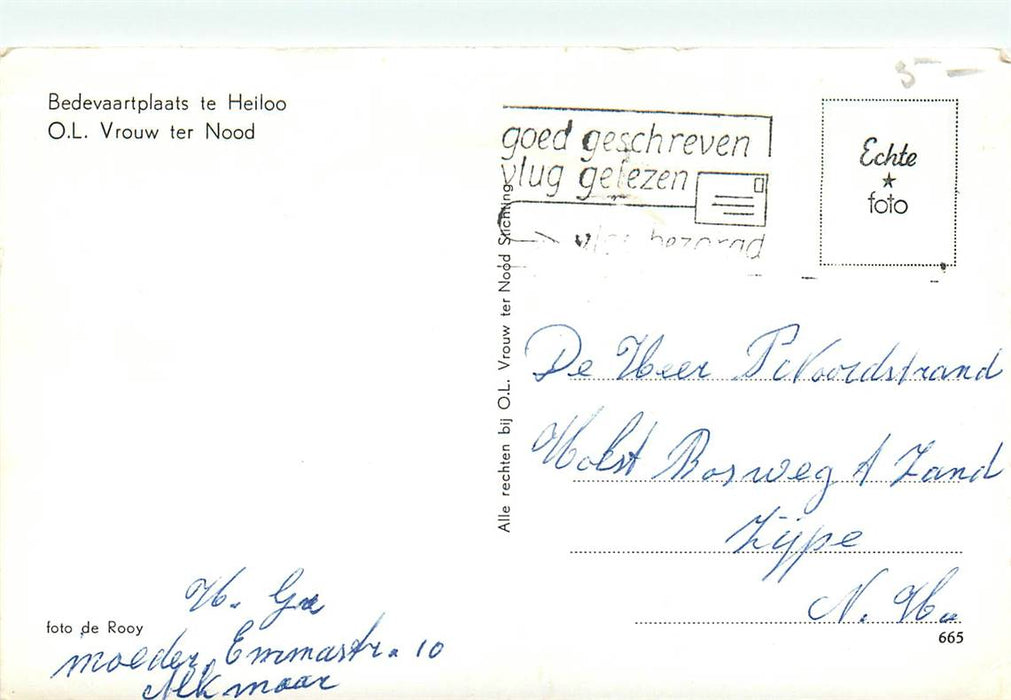 Bedevaartplaats te Heiloo
O.L. Vrouw ter Nood
goed geschreven
vlug gelezen
vlug bezorgd
Echte
foto
Alle rechten bij O.L. Vrouw ter Nood Stichting
De Heer P Noordstrand
Bosweg t Zand
Zijpe
N. Ho
H. Gr
foto de Rooy
moeder Emmastr. 10
Alkmaar
665